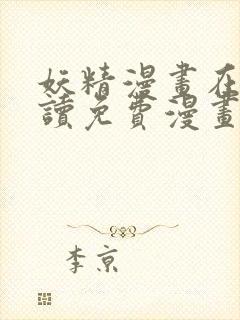 妖精漫畫在
讀免費漫畫
李京